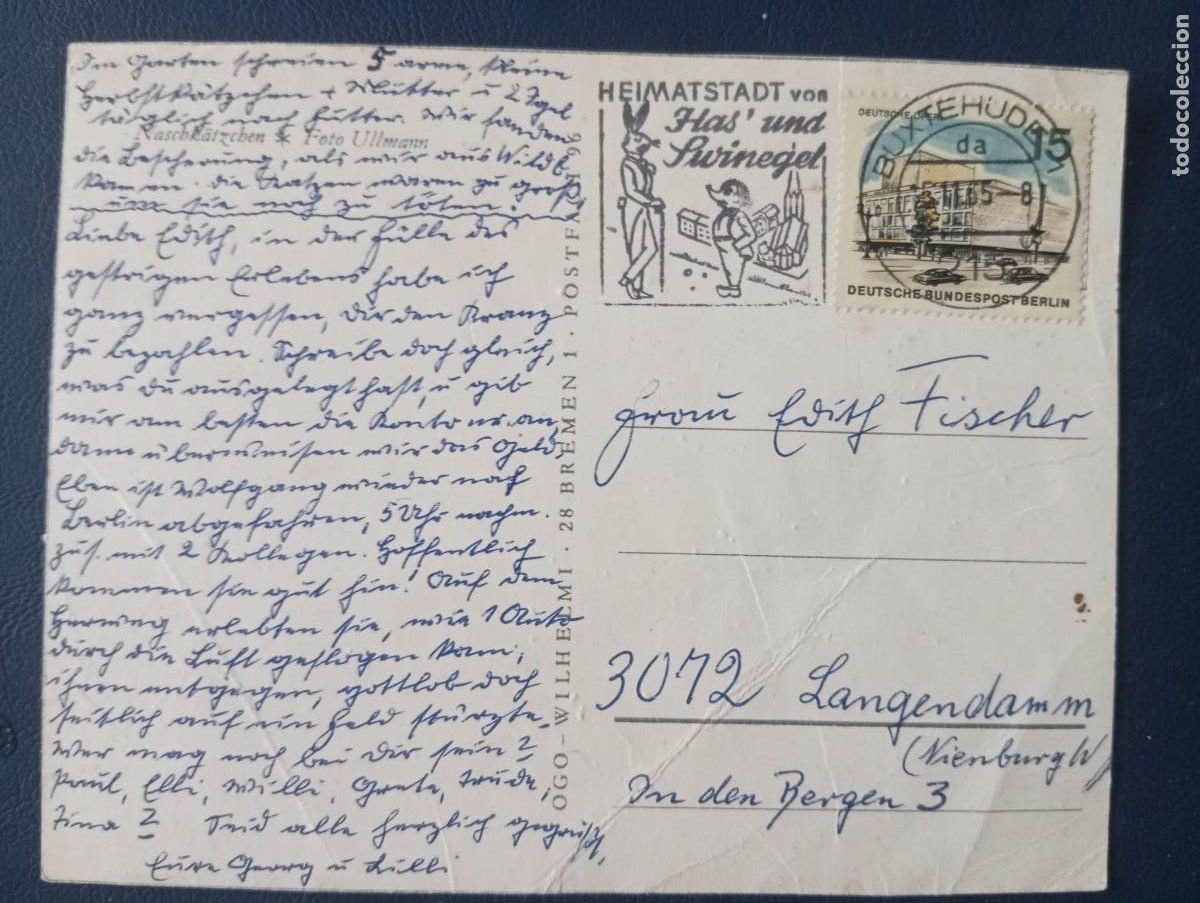 Im Garten schreien 5 arme, kleine
Herbstkätzchen + Mutter u 2 Igel
täglich nach Futter. Wir fanden
Naschkätzchen * Foto Ullmann
die Bescherung, als wir aus Wildb.
kamen. die Katzen waren zu groß,
um sie noch zu töten.
Liebe Edith, in der Fülle des
gestrigen Erlebens habe ich
ganz vergessen, Dir den Kranz
zu bezahlen. Schreibe doch gleich,
was du ausgelegt hast, u gib
mir am besten die Kontonr. an,
dann überweisen wir das Geld.
Eben ist Wolfgang wieder nach
Berlin abgefahren, 5 Uhr nachm.
zus. mit 2 Kollegen. Hoffentlich
kommen sie gut hin! Auf dem
Herweg erlebten sie, wie 1 Auto
durch die Luft geflogen kam,
ihnen entgegen, gottlob doch
seitlich auf ein Feld stürzte.
Wer mag noch bei Dir sein?
Paul, Elli, Willi, Grete, Trude,
Tina? Seid alle herzlich gegrüßt,
Eure Georg u Lilli
OGO-WILHELMI · 28 BREMEN 1 · POSTFACH 96
HEIMATSTADT von
Has' und
Swinegel
BUXTEHUDE 1
da
11.65-8
DEUTSCHE OPER
15
DEUTSCHE BUNDESPOST BERLIN
Frau Edith Fischer
3072 Langendamm
(Nienburg W)
In den Bergen 3
todocoleccion